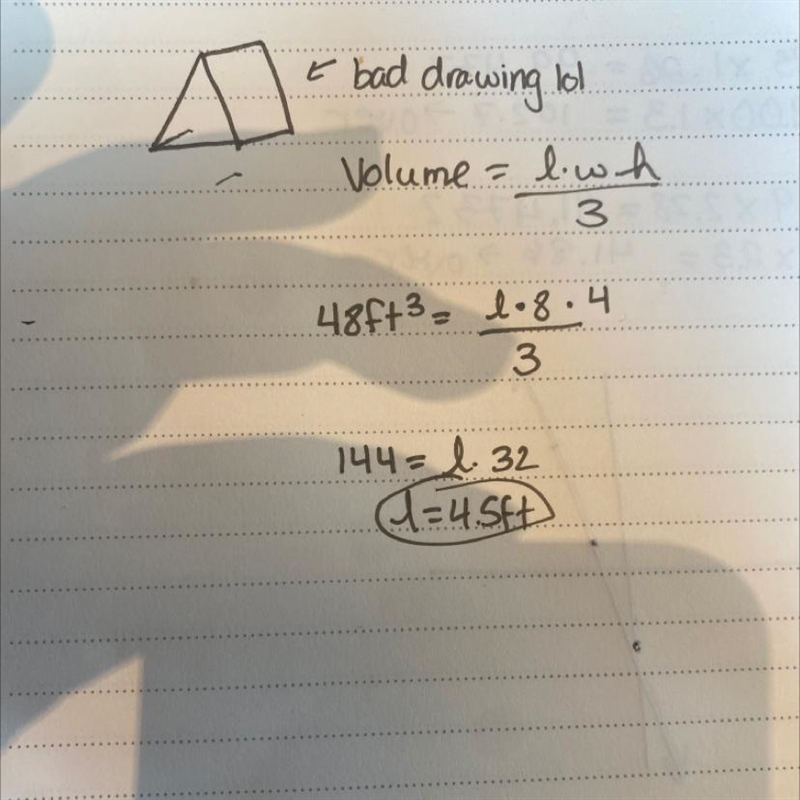 ← bad drawing lol
Volume = l·w·h
3
48ft³ = l·8·4
3
144 = l·32
l=4.5ft